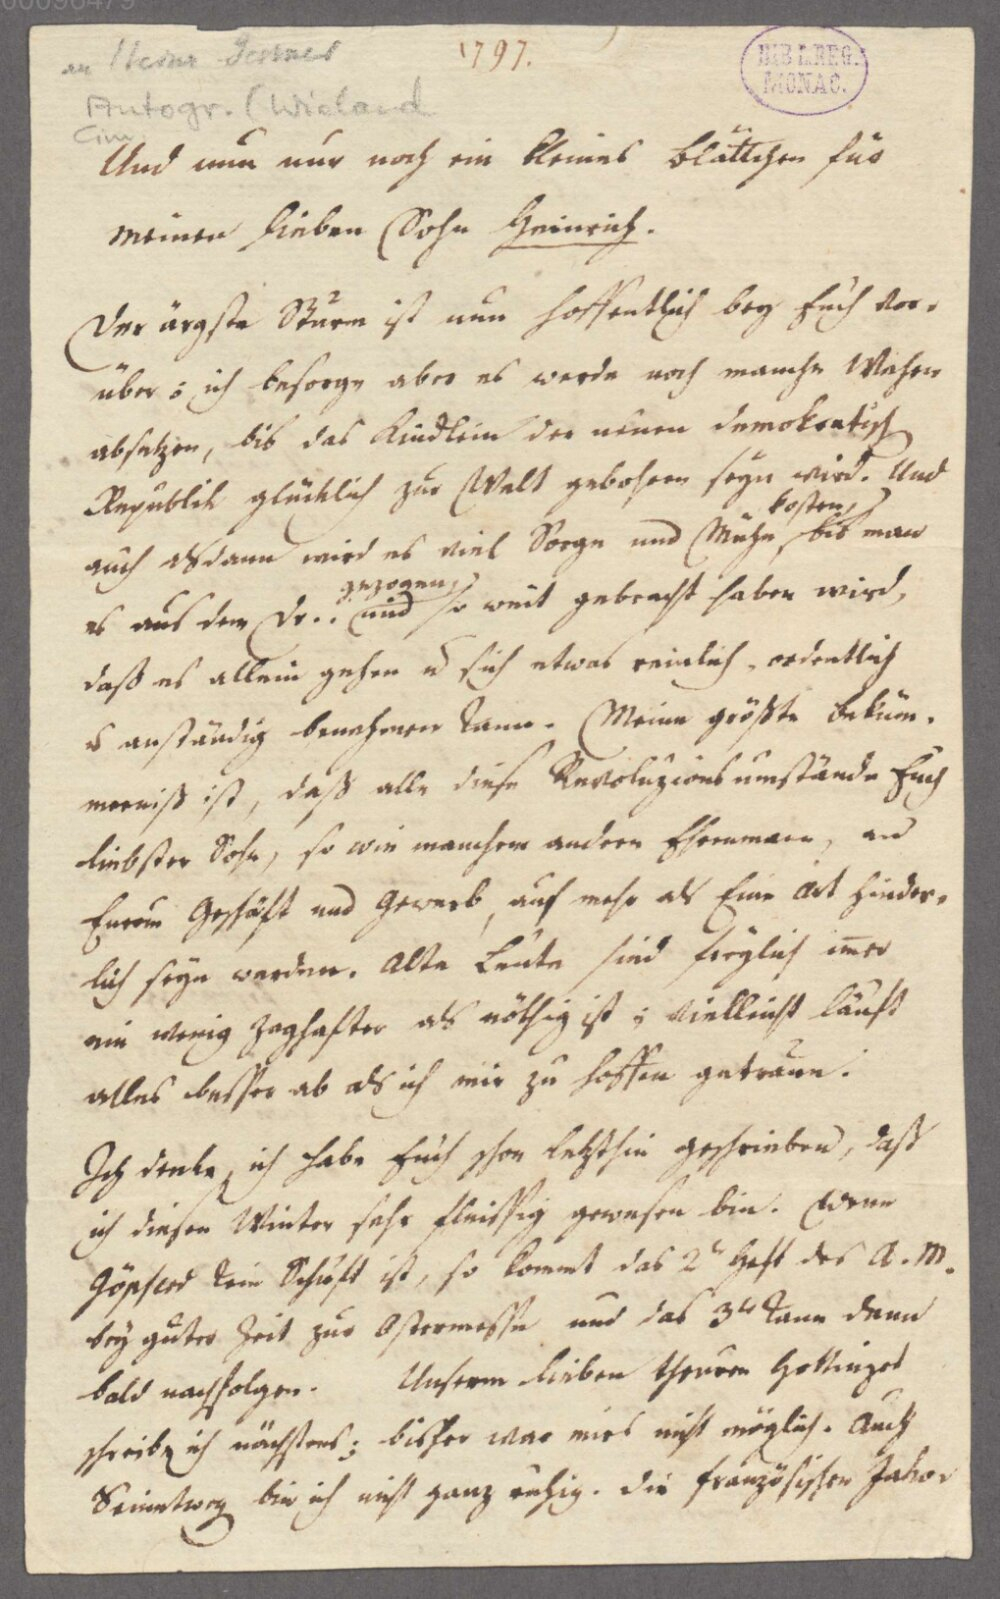 00090479
an Heinr Gessner
1797.
BIBL.REG.
MONAC.
Autogr. (Wieland
Cim
Und nun nur noch ein kleines Blättchen für
meinen lieben Sohn Heinrich.
Der ärgste Sturm ist nun hoffentlich bey Euch vor-
über; ich besorge aber es werde noch manche Wehen
absetzen, bis das Kindlein der neuen demokratisch
Republik glücklich zur Welt gebohren seyn wird. Und
kosten,
auch alsdann wird es viel Sorge und Mühe bis man
gezogen,
es aus dem Dr.. und so weit gebracht haben wird,
daß es allein gehen u sich etwas reinlich, ordentlich
u anständig benehmen kann. Meine größte Beküm-
merniß ist, daß alle diese Revoluzionsumstände Euch
liebster Sohn, so wie manchem andern Ehrenmann, an
Eurem Geschäft und Gewerb, auf mehr als Eine Art hinder-
lich seyn werden. Alte Leute sind freylich imer
ein wenig zaghafter als nöthig ist; vielleicht läuft
alles besser ab als ich mir zu hoffen getraue.
Ich denke, ich habe Euch schon letzthin geschrieben, daß
ich diesen Winter sehr fleissig gewesen bin. Wenn
Göpferd kein Schuft ist, so kommt das 2te Heft des A. M.
bey guter Zeit zur Ostermesse und das 3te kann dann
bald nachfolgen. Unserm lieben theuren Hottinger
schreibe ich nächstens; bisher war mirs nicht möglich. Auch
Seinetweg bin ich nicht ganz ruhig. Die französischen Jako-